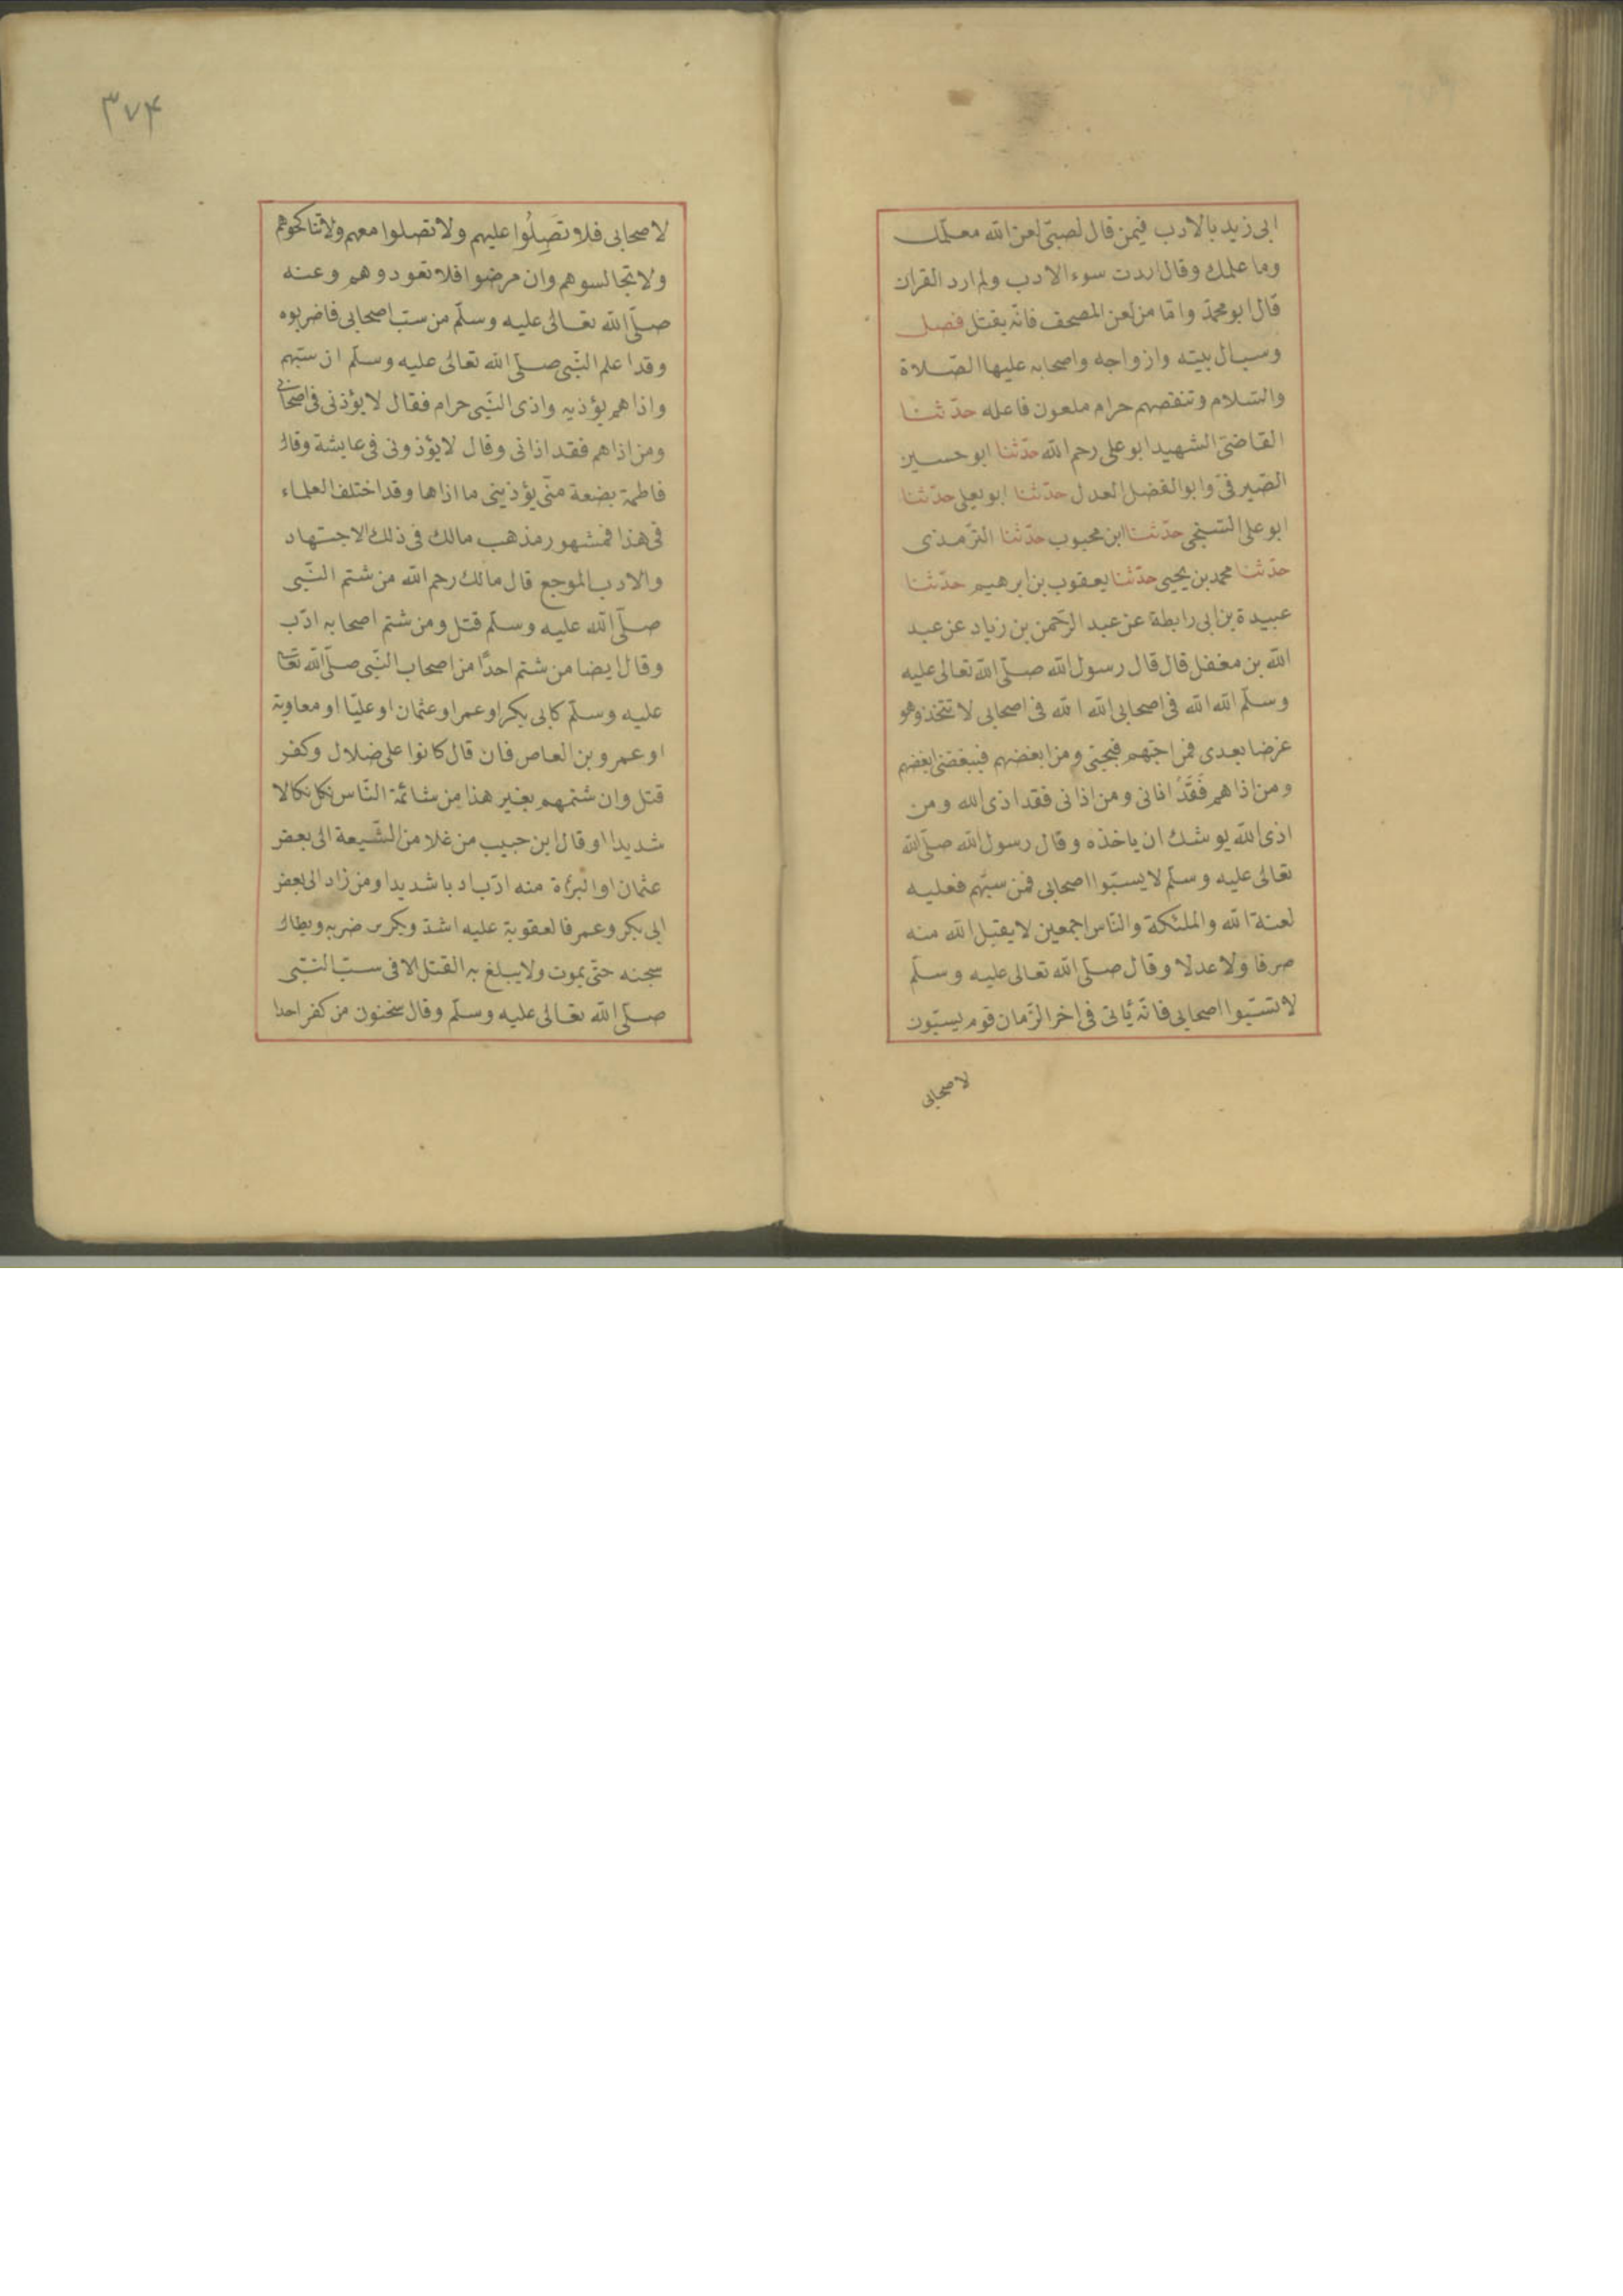 ابى زيد بالادب فيمن قال لصبىّ لعن الله معلّمك
وما علمك وقال اردت سوء الادب ولم ارد القران
قال ابو محمّد وامّا من لعن المصحف فانّه يقتل فصل
وسبال بيته وازواجه واصحابه عليها الصّلاة
والسّلام وتنقصهم حرام ملعون فاعله حدّثنا
القاضى الشهيد ابو على رحم الله حدّثنا ابو حسين
الصّيرفىّ وابو الفضل العدل حدّثنا ابو يعلى حدّثنا
ابو على السّنجى حدّثنا ابن محبوب حدّثنا الترّمذى
حدّثنا محمد بن يحيى حدّثنا يعقوب بن ابرهيم حدّثنا
عبيدة بن ابى رابطة عن عبد الرّحمن بن زياد عن عبد
الله بن مغفل قال قال رسول الله صلّى الله تعالى عليه
وسلّم الله الله فى اصحابى الله الله فى اصحابى لا تتخذوهو
غرضا بعدى فمن احبّهم فبحبّى ومن ابغضهم فيبغضى ابغضهم
ومن اذاهم فَقَدْ اذانى ومن اذانى فقد اذى الله ومن
اذى الله يوشك ان ياخذه وقال رسول الله صلّى الله
تعالى عليه وسلّم لا يسبّوا اصحابى فمن سبّهم فعليه
لعنة الله والملئكة والنّاس اجمعين لا يقبل الله منه
صرفا ولا عدلا وقال صلّى الله تعالى عليه وسلّم
لا تسبّوا اصحابى فانّه يأتى فى اخر الزّمان قوم يسبّون
لاصحابى
٣٧٤
لاصحابى فلا تَصِلُوا عليهم ولا تصلوا معهم ولا تناكحوهم
ولا تجالسوهم وان مرضوا فلا تعودوهم وعنه
صلّى الله تعالى عليه وسلّم من سبّ اصحابى فاضربوه
وقد اعلم النّبى صلّى الله تعالى عليه وسلّم ان سبّهم
واذاهم يؤذيه واذى النّبى حرام فقال لا يؤذنى فى اصحابى
ومن اذاهم فقد اذانى وقال لا يؤذونى فى عايشة وقال
فاطمة بضعة منّى يؤذينى ما اذاها وقد اختلف العلماء
فى هذا فمشهور مذهب مالك فى ذلك الاجتهاد
والادب الموجع قال مالك رحم الله من شتم النّبى
صلّى الله عليه وسلّم قتل ومن شتم اصحابه ادّب
وقال ايضا من شتم احدًا من اصحاب النّبى صلّى الله تعالى
عليه وسلّم كابى بكر او عمر او عثمان او عليّا او معاوية
او عمرو بن العاص فان قال كانوا على ضلال وكفر
قتل وان شتمهم بغير هذا من مشاتمة النّاس نكل نكالا
شديدا او قال ابن حبيب من غلا من الشّيعة الى بعض
عثمان او البرأة منه ادّب ادبا شديدا ومن زاد الى بعض
ابى بكر وعمر فالعقوبة عليه اشدّ ويكرر ضربه ويطال
سجنه حتّى يموت ولا يبلغ به القتل الا فى سبّ النّبّى
صلّى الله تعالى عليه وسلّم وقال سحنون من كفر احدا